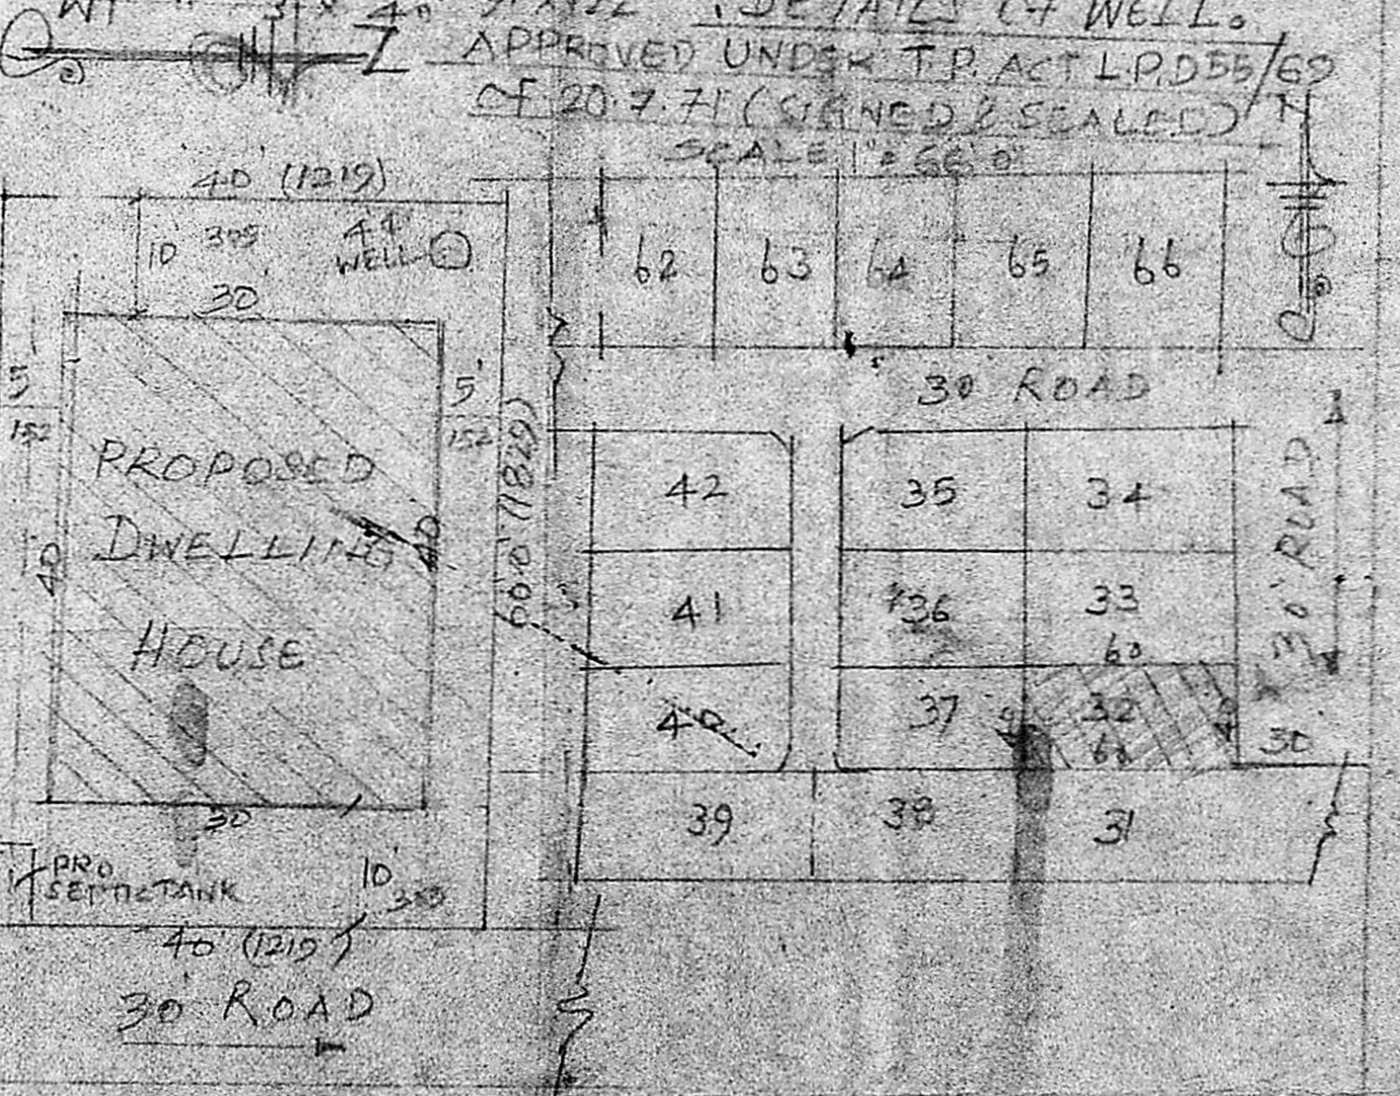 40' . DETAILS OF WELL.
N
APPROVED UNDER T.P. ACT L.P.D 55/69
of 20.7.71 (SIGNED & SEALED)
SCALE 1" = 66'0"
N
40' (1219)
10'
4'
WELL
30'
5'
152
5'
152
PROPOSED
DWELLING
HOUSE
40
40
66'0" (1829)
30'
PRO
SEPTIC TANK
10'
40' (1219)
30' ROAD
62 63 64 65 66
30 ROAD
42 35 34
41 36 33
60
40 37 32
60
30
39 38 31
30' ROAD